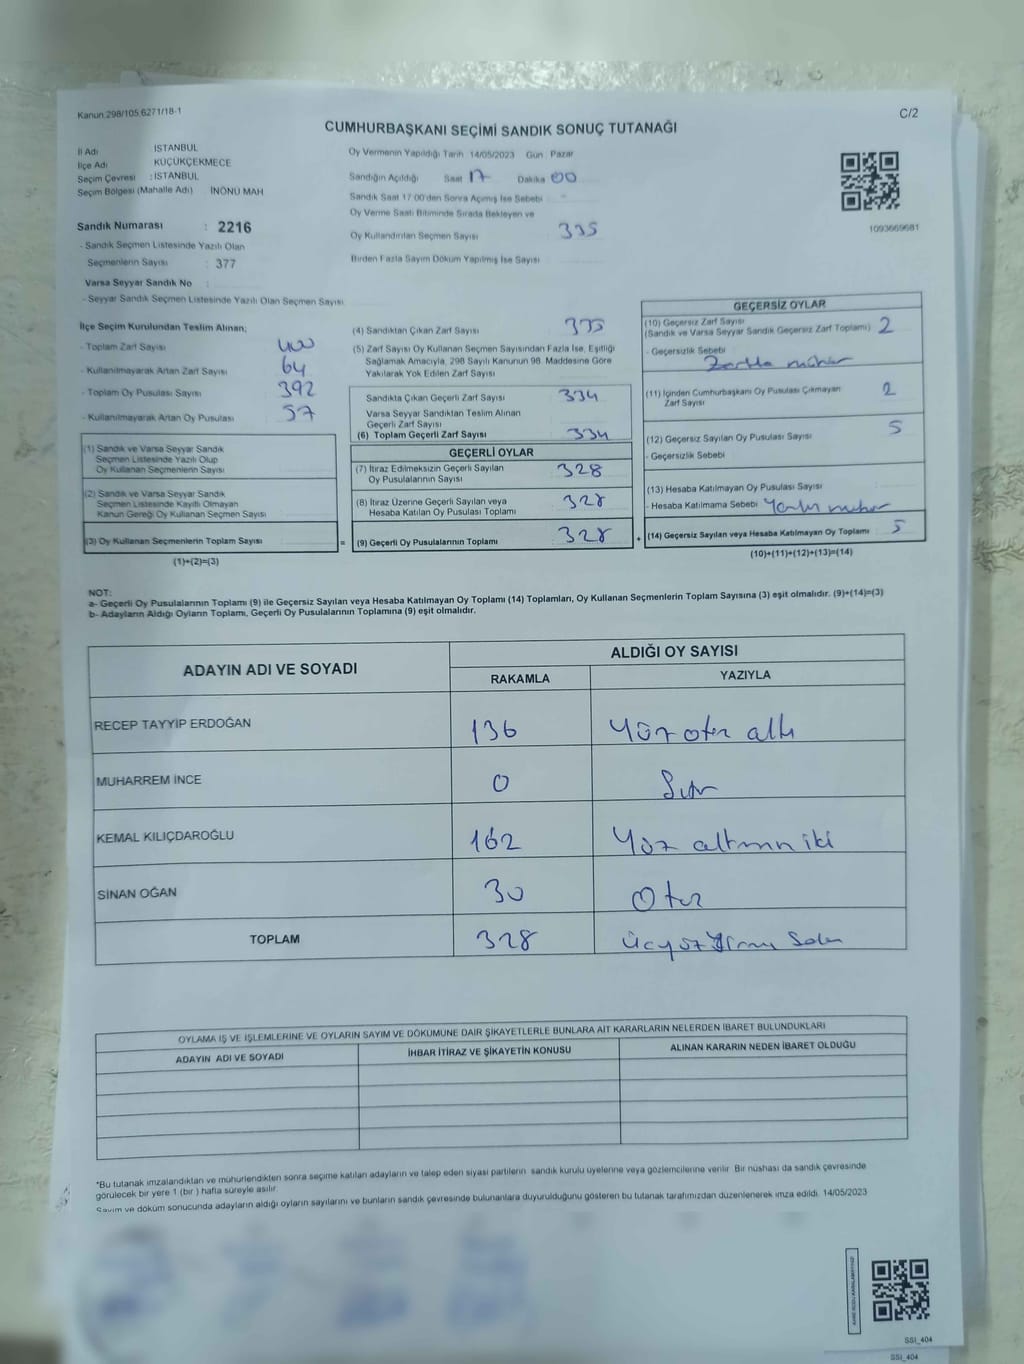 Kanun.298/105.6271/18-1
C/2
CUMHURBAŞKANI SEÇİMİ SANDIK SONUÇ TUTANAĞI
İl Adı İSTANBUL
İlçe Adı KÜÇÜKÇEKMECE
Seçim Çevresi : İSTANBUL
Seçim Bölgesi (Mahalle Adı) İNÖNÜ MAH
Oy Vermenin Yapıldığı Tarih 14/05/2023 Gün : Pazar
Sandığın Açıldığı Saat 17 Dakika 00
Sandık Saat 17:00'den Sonra Açılmış İse Sebebi
Oy Verme Saati Bitiminde Sırada Bekleyen ve
Oy Kullandırılan Seçmen Sayısı 335
Birden Fazla Sayım Döküm Yapılmış İse Sayısı
1093669681
Sandık Numarası : 2216
- Sandık Seçmen Listesinde Yazılı Olan
Seçmenlerin Sayısı : 377
Varsa Seyyar Sandık No :
- Seyyar Sandık Seçmen Listesinde Yazılı Olan Seçmen Sayısı
İlçe Seçim Kurulundan Teslim Alınan;
- Toplam Zarf Sayısı 400
- Kullanılmayarak Artan Zarf Sayısı 64
- Toplam Oy Pusulası Sayısı 392
- Kullanılmayarak Artan Oy Pusulası 57
(1) Sandık ve Varsa Seyyar Sandık
Seçmen Listesinde Yazılı Olup
Oy Kullanan Seçmenlerin Sayısı
(2) Sandık ve Varsa Seyyar Sandık
Seçmen Listesinde Kayıtlı Olmayan
Kanun Gereği Oy Kullanan Seçmen Sayısı
(3) Oy Kullanan Seçmenlerin Toplam Sayısı
(1)+(2)=(3)
(4) Sandıktan Çıkan Zarf Sayısı 335
(5) Zarf Sayısı Oy Kullanan Seçmen Sayısından Fazla İse, Eşitliği
Sağlamak Amacıyla, 298 Sayılı Kanunun 98. Maddesine Göre
Yakılarak Yok Edilen Zarf Sayısı
Sandıkta Çıkan Geçerli Zarf Sayısı 334
Varsa Seyyar Sandıktan Teslim Alınan
Geçerli Zarf Sayısı
(6) Toplam Geçerli Zarf Sayısı 334
GEÇERLİ OYLAR
(7) İtiraz Edilmeksizin Geçerli Sayılan
Oy Pusulalarının Sayısı 328
(8) İtiraz Üzerine Geçerli Sayılan veya
Hesaba Katılan Oy Pusulası Toplamı 328
= (9) Geçerli Oy Pusulalarının Toplamı 328
GEÇERSİZ OYLAR
(10) Geçersiz Zarf Sayısı
(Sandık ve Varsa Seyyar Sandık Geçersiz Zarf Toplamı) 2
- Geçersizlik Sebebi
Zarfta mühür
(11) İçinden Cumhurbaşkanı Oy Pusulası Çıkmayan
Zarf Sayısı 2
(12) Geçersiz Sayılan Oy Pusulası Sayısı 5
- Geçersizlik Sebebi
(13) Hesaba Katılmayan Oy Pusulası Sayısı
- Hesaba Katılmama Sebebi Yanlış mühür
+ (14) Geçersiz Sayılan veya Hesaba Katılmayan Oy Toplamı 5
(10)+(11)+(12)+(13)=(14)
NOT:
a- Geçerli Oy Pusulalarının Toplamı (9) ile Geçersiz Sayılan veya Hesaba Katılmayan Oy Toplamı (14) Toplamları, Oy Kullanan Seçmenlerin Toplam Sayısına (3) eşit olmalıdır. (9)+(14)=(3)
b- Adayların Aldığı Oyların Toplamı, Geçerli Oy Pusulalarının Toplamına (9) eşit olmalıdır.
ADAYIN ADI VE SOYADI
ALDIĞI OY SAYISI
RAKAMLA YAZIYLA
RECEP TAYYİP ERDOĞAN 136 Yüz otuz altı
MUHARREM İNCE 0 Sıfır
KEMAL KILIÇDAROĞLU 162 Yüz altmış iki
SİNAN OĞAN 30 Otuz
TOPLAM 328 Üçyüz Yirmi Sekiz
OYLAMA İŞ VE İŞLEMLERİNE VE OYLARIN SAYIM VE DÖKÜMÜNE DAİR ŞİKAYETLERLE BUNLARA AİT KARARLARIN NELERDEN İBARET BULUNDUKLARI
ADAYIN ADI VE SOYADI İHBAR İTİRAZ VE ŞİKAYETİN KONUSU ALINAN KARARIN NEDEN İBARET OLDUĞU
*Bu tutanak imzalandıktan ve mühürlendikten sonra seçime katılan adayların ve talep eden siyasi partilerin sandık kurulu üyelerine veya gözlemcilerine verilir. Bir nüshası da sandık çevresinde
görülecek bir yere 1 (bir ) hafta süreyle asılır.
Sayım ve döküm sonucunda adayların aldığı oyların sayılarını ve bunların sandık çevresinde bulunanlara duyurulduğunu gösteren bu tutanak tarafımızdan düzenlenerek imza edildi. 14/05/2023
SSİ_404
SSİ_404